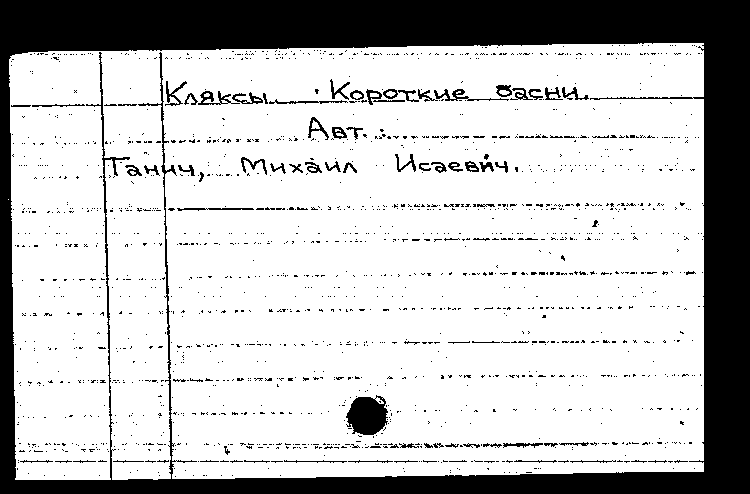 Кляксы. Короткие басни.
Авт.:
Танич, Михаил Исаевич.